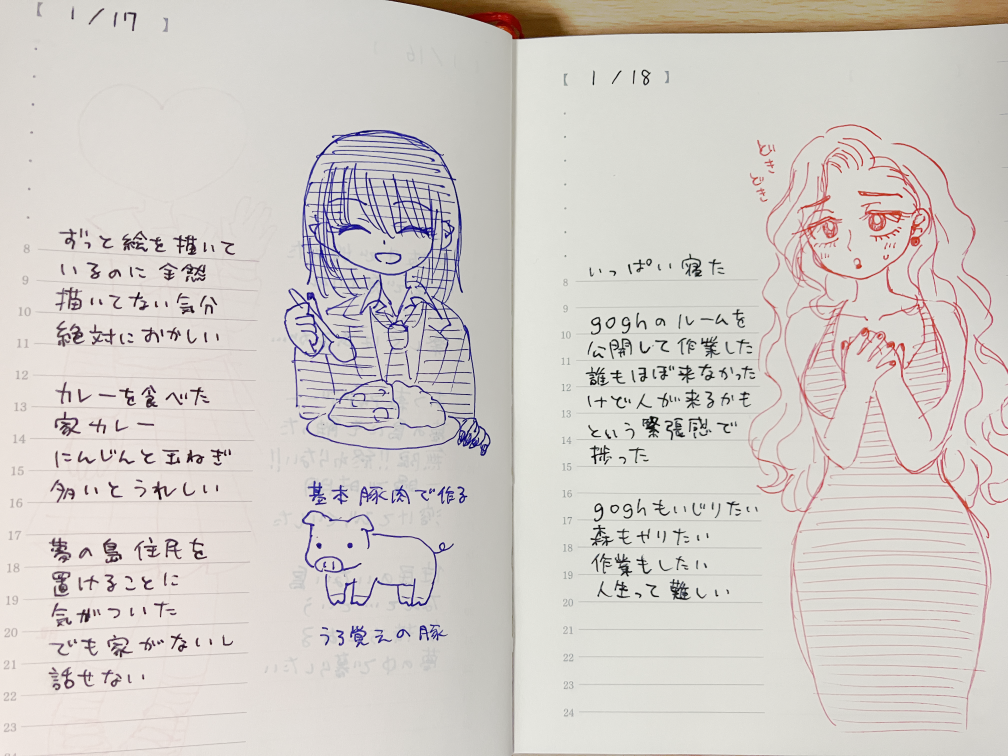 【 1 / 17 】
8
9
10
11
12
13
14
15
16
17
18
19
20
21
22
23
ずっと絵を描いて
いるのに全然
描いてない気分
絶対におかしい
カレーを食べた
家カレー
にんじんと玉ねぎ
多いとうれしい
夢の島住民を
置けることに
気がついた
でも家がないし
話せない
基本豚肉で作る
うろ覚えの豚
【 1 / 18 】
8
9
10
11
12
13
14
15
16
17
18
19
20
21
22
23
24
いっぱい寝た
goghのルームを
公開して作業した
誰もほぼ来なかった
けど人が来るかも
という緊張感で
捗った
goghもいじりたい
森もやりたい
作業もしたい
人生って難しい
どき
どき